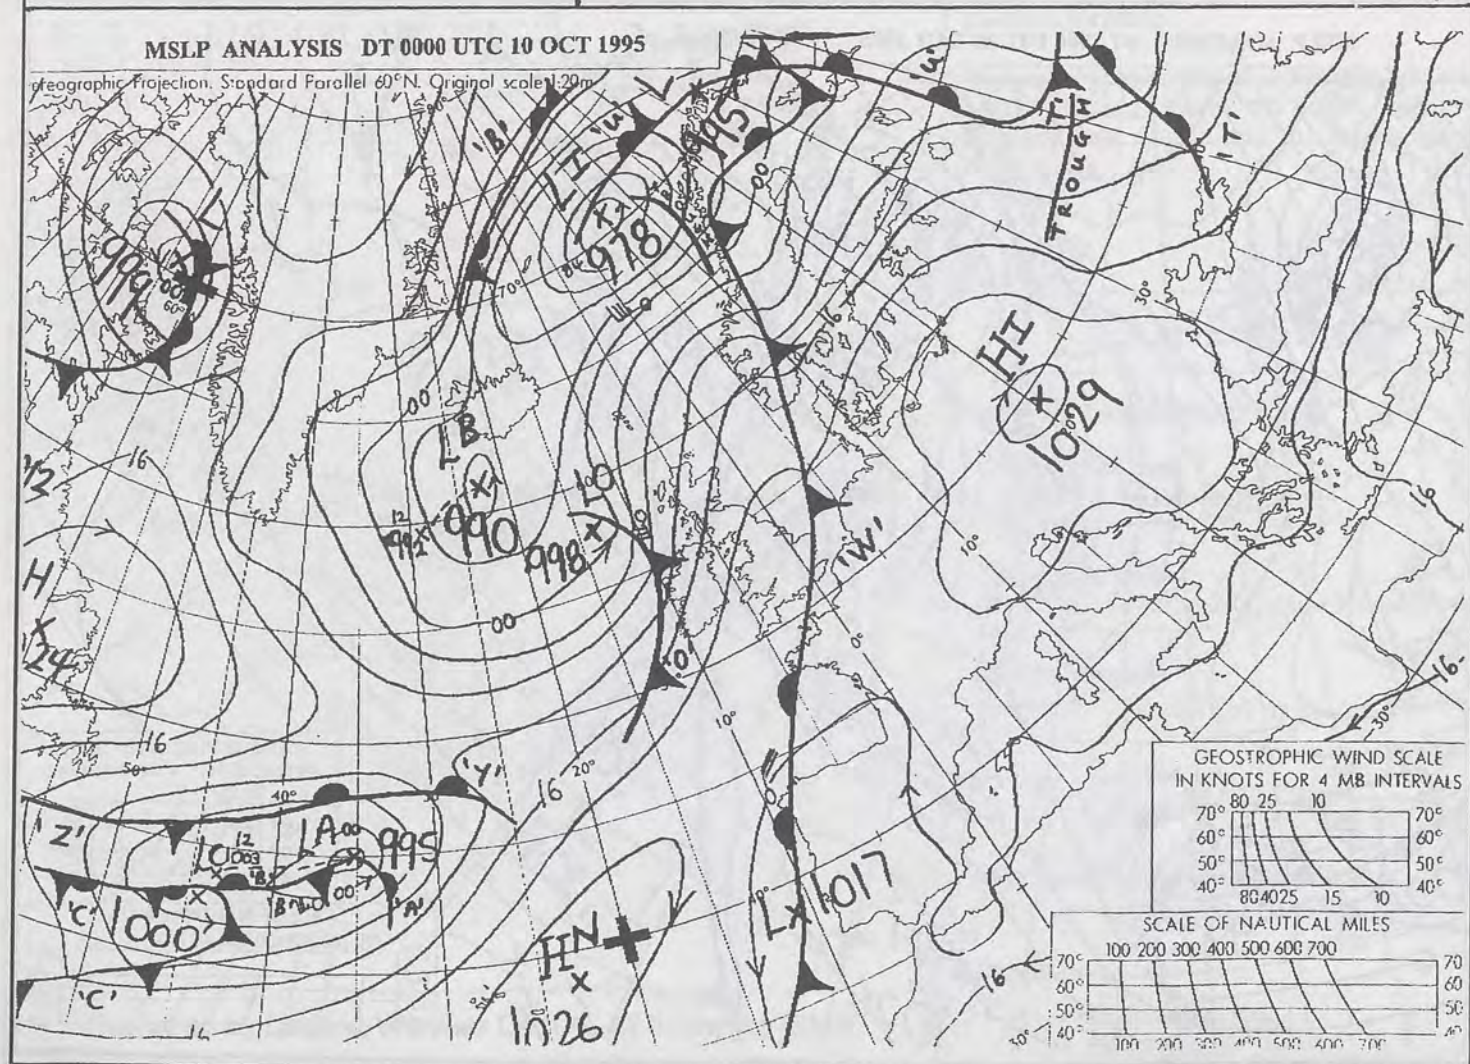 MSLP ANALYSIS DT 0000 UTC 10 OCT 1995
Projection. Standard Parallel 60°N. Original scale 1:20m
'B'
'U'
L I
978
995
00
'U'
'T'
TROUGH
'T'
L
999
HI
1029
30°
16
16
16
L B
990
12
992
00
LO
998
00
00
H
24
16
'W'
10°
0°
'O'
10°
20°
16
50°
40°
'Y'
'Z'
LA
00
995
LC
12
1003
'B'
'A'
'C'
1000
'C'
16
HN
1026
L
1017
16
30°
16
GEOSTROPHIC WIND SCALE
IN KNOTS FOR 4 MB INTERVALS
80 25 10
70° 70°
60° 60°
50° 50°
40° 40°
80 40 25 15 10
SCALE OF NAUTICAL MILES
100 200 300 400 500 600 700
70° 70
60 60
50° 50
40° 40
100 200 300 400 500 600 700